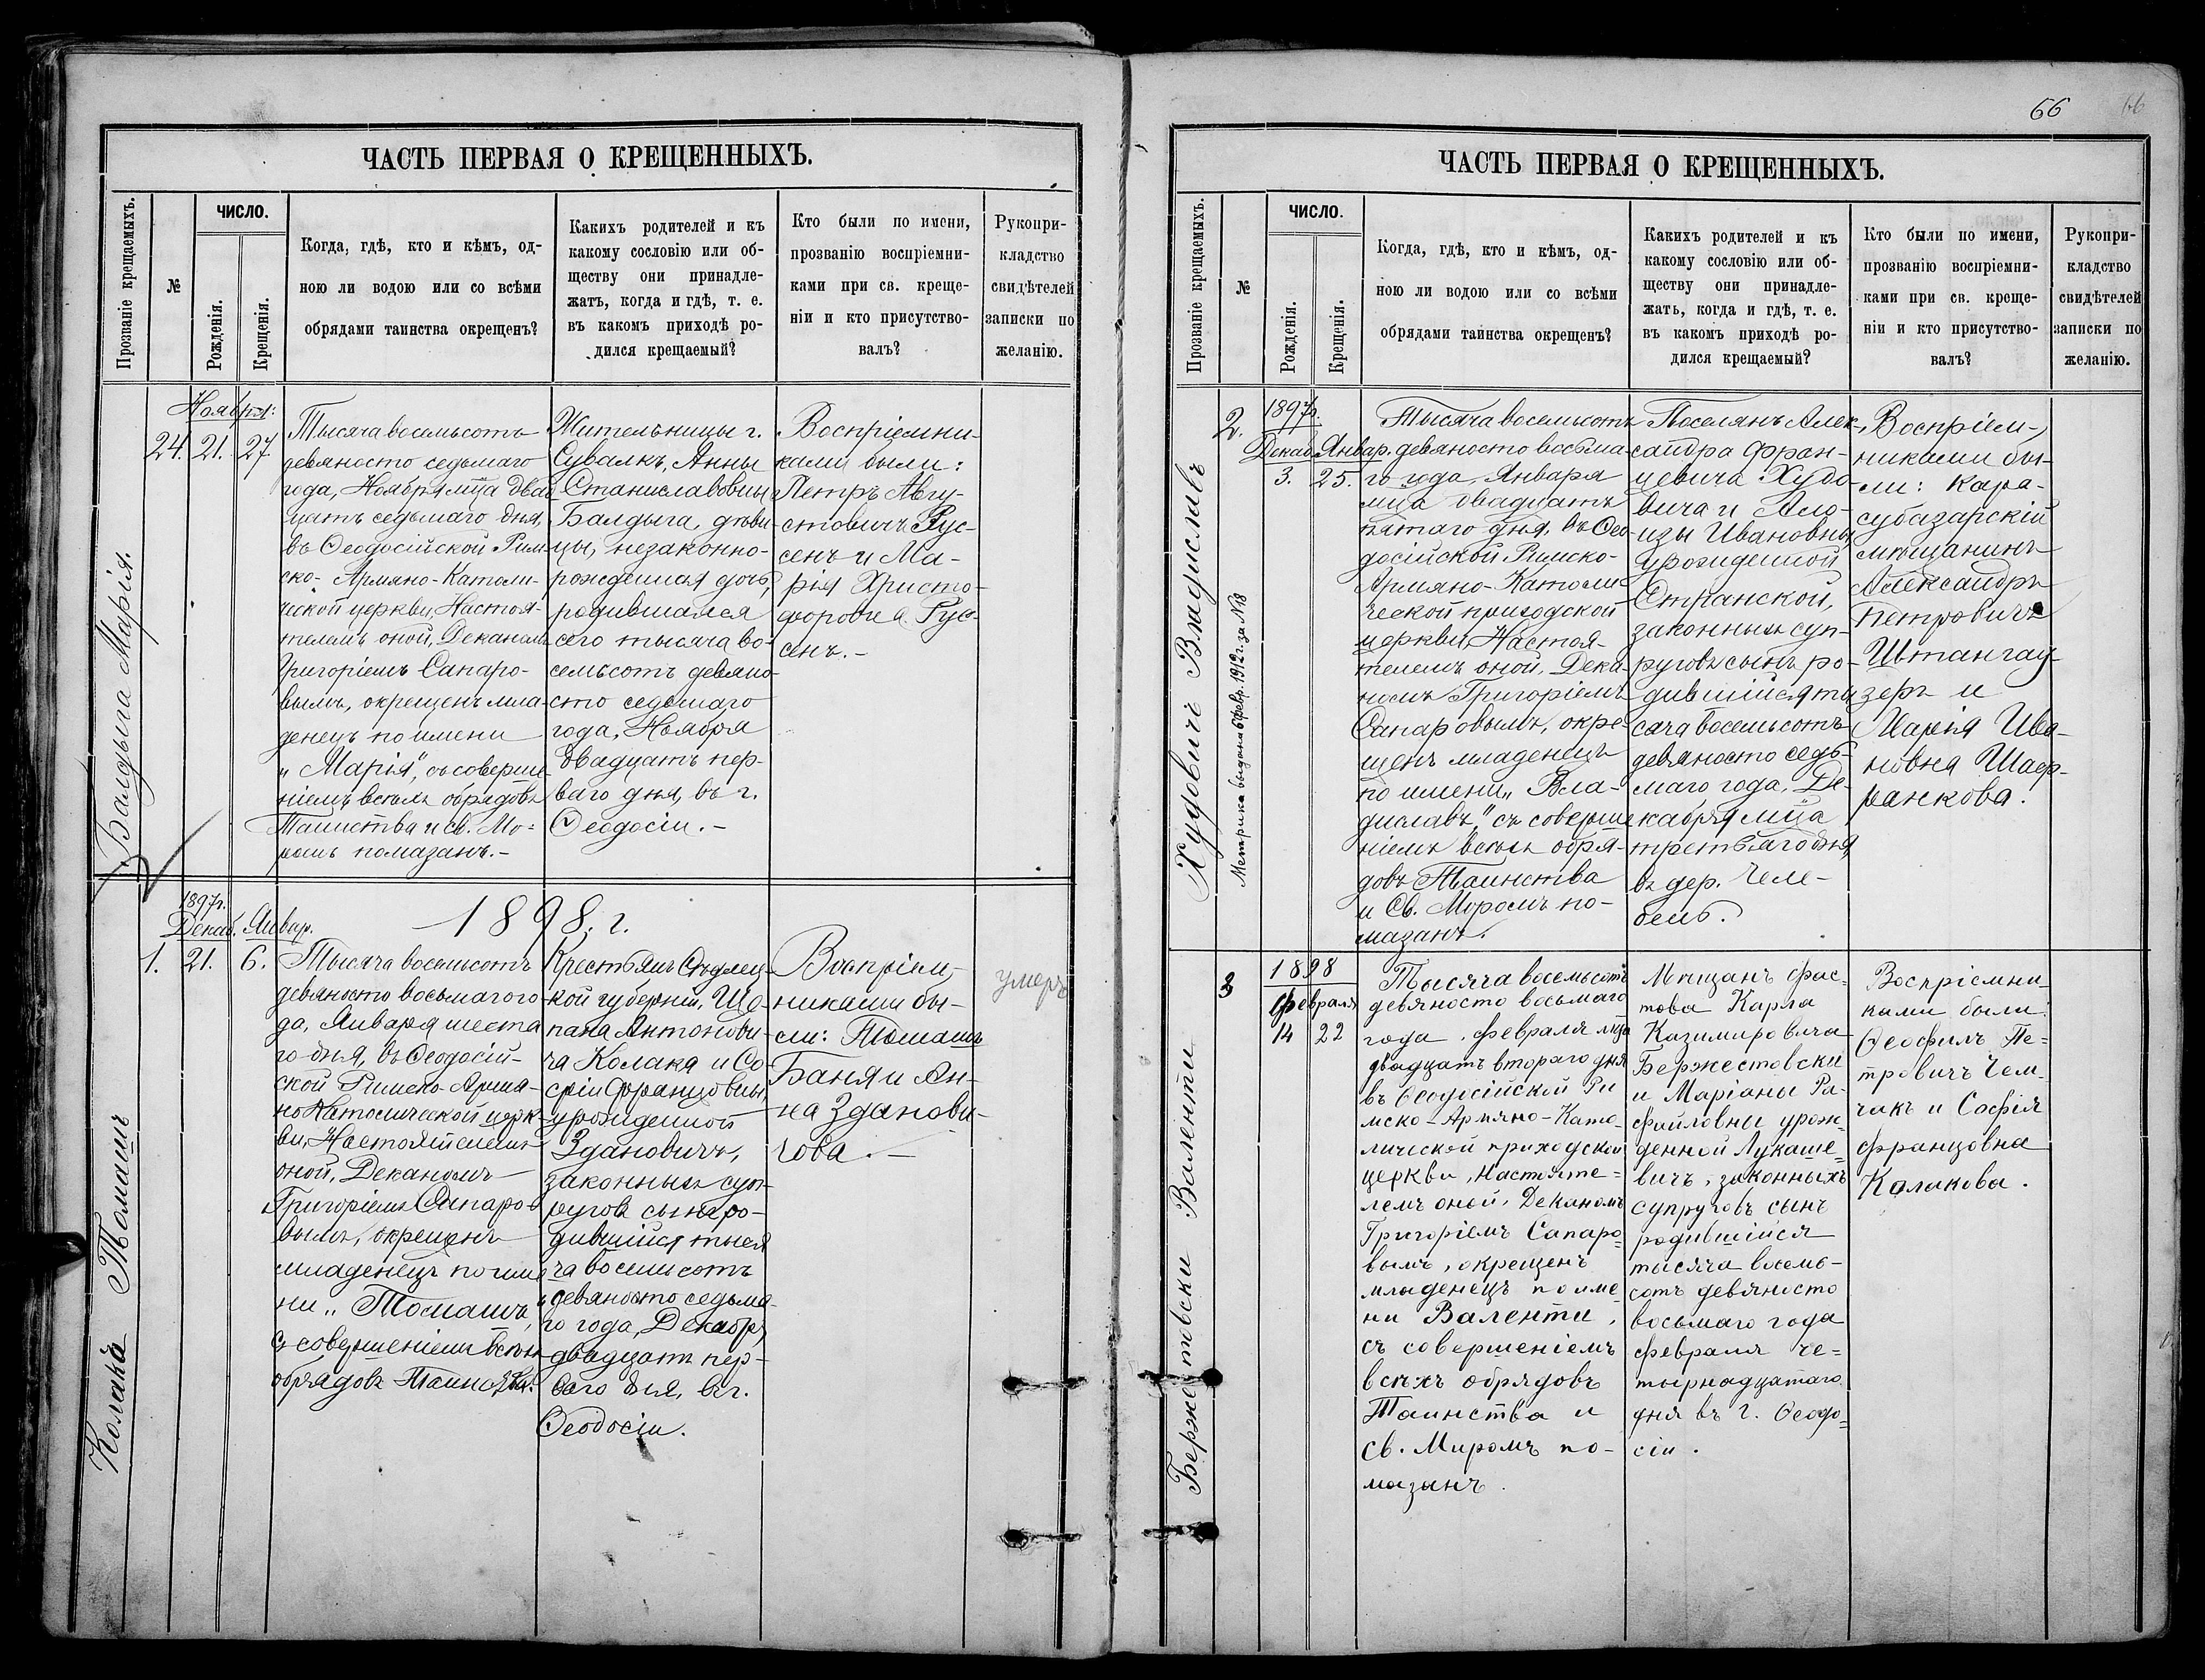 ЧАСТЬ ПЕРВАЯ О КРЕЩЕННЫХЪ.
Прозваніе крещаемыхъ.
№
ЧИСЛО.
Рожденія.
Крещенія.
Когда, гдѣ, кто и кѣмъ, од-
ною ли водою или со всѣми
обрядами таинства окрещенъ?
Какихъ родителей и къ
какому сословію или об-
ществу они принадле-
жатъ, когда и гдѣ, т. е.
въ какомъ приходѣ ро-
дился крещаемый?
Кто были по имени,
прозванію воспріемни-
ками при св. креще-
ніи и кто присутство-
валъ?
Рукопри-
кладство
свидѣтелей
записки по
желанію.
Балдыга Марія.
Ноября:
24. 21. 27
Тысяча восемьсотъ
девяносто седьмаго
года, Ноября мца двад
цать седьмаго дня,
въ Ѳеодосійской Рим-
ско-Армяно-Католи-
ческой церкви, Настоя-
телемъ оной, Деканомъ
Григоріемъ Сапаро-
вымъ, окрещенъ мла-
денецъ по имени
„Марія", съ соверше-
ніемъ всѣхъ обрядовъ
Таинства и св. Мѵ-
ромъ помазанъ.-
Жительницы г.
Сувалкъ, Анны
Станиславовны
Балдыга, дѣви-
цы, незаконно-
рожденная дочь,
родившаяся
сего тысяча во-
семьсотъ девяно-
сто седьмаго
года, Ноября
двадцать пер-
ваго дня, въ г.
Ѳеодосіи.-
Воспріемни-
ками были:
Петръ Авгу-
стовичъ Рус-
сенъ и Ма-
рія Христо-
форовна Рус-
сенъ.-
Колака Томашъ
1898. г.
1897г.
Декаб. Январ.
1. 21. 6.
Тысяча восемьсотъ
девяносто восьмаго го-
да, Января шеста
го дня, въ Ѳеодосій-
ской Римско-Армя-
но Католической церк-
ви, Настоятелемъ
оной, Деканомъ
Григоріемъ Сапаро-
вымъ, окрещенъ
младенецъ по име
ни „Томашъ",
съ совершеніемъ всѣхъ
обрядовъ Таинства.
Крестьянъ Сѣдлец-
кой губерніи, Ще-
пана Антонови-
ча Колака и Со
фіи Францовны,
урожденной
Здановичъ,
законныхъ суп-
руговъ сынъ ро-
дившійся тыся
ча восемьсотъ
девяносто седьма-
го года, Декабря
двадцать пер-
ваго дня, въ г.
Ѳеодосіи.
Воспріем-
никами бы-
ли: Томашъ
Баня и Ан-
на Здонови-
чова.-
умеръ
66
66
ЧАСТЬ ПЕРВАЯ О КРЕЩЕННЫХЪ.
Прозваніе крещаемыхъ.
№
ЧИСЛО.
Рожденія.
Крещенія.
Когда, гдѣ, кто и кѣмъ, од-
ною ли водою или со всѣми
обрядами таинства окрещенъ?
Какихъ родителей и къ
какому сословію или об-
ществу они принадле-
жатъ, когда и гдѣ, т. е.
въ какомъ приходѣ ро-
дился крещаемый?
Кто были по имени,
прозванію воспріемни-
ками при св. креще-
ніи и кто присутство-
валъ?
Рукопри-
кладство
свидѣтелей
записки по
желанію.
Худовичъ Владиславъ
Метрика выдана 6 февр. 1912 г. за №8
2.
1897г.
Декаб. Январ.
3. 25.
Тысяча восемьсотъ
девяносто восьма-
го года, Января
мца двадцать
пятаго дня, въ Ѳео-
досійской Римско-
Армяно-Католи-
ческой приходской
церкви, Настоя-
телемъ оной, Дека-
номъ Григоріемъ
Сапаровымъ, окре-
щенъ младенецъ
по имени „Вла-
диславъ," съ соверше
ніемъ всѣхъ обря-
довъ Таинства
и Св. Мѵромъ по-
мазанъ.
Поселянъ Алек-
сандра Фран-
цевича Худо-
вича и Ало-
изы Ивановны
урожденной
Странской,
законныхъ суп-
руговъ сынъ ро-
дившійся ты
сяча восемьсотъ
девяносто седь-
маго года, Де-
кабря мца
третьяго дня,
въ дер. Челе-
бемъ.
Воспріем-
никами бы-
ли: Кара-
субазарскій
мѣщанинъ
Александръ
Петровичъ
Штангау-
зеръ и
Марія Ива-
новна Шаер-
ранкова.
Бержестовски Валенти
3
1898
Февраля
14 22
Тысяча восемьсотъ
девяносто восьмаго
года, февраля мца
двадцать втораго дня
въ Ѳеодосійской Ри
мско-Армяно-Като-
лической приходской
церкви, Настояте=
лемъ оной, Деканомъ
Григоріемъ Сапаро=
вымъ, окрещенъ
младенецъ по име
ни Валенти,
съ совершеніемъ
всѣхъ обрядовъ
Таинства и
св. Миромъ по-
мазанъ.
Мѣщанъ Фас-
това Карла
Казимировича
Бержестовски
и Маріаны Ра-
файловны урож-
денной Лукаше=
вичъ, законныхъ
супруговъ сынъ
родившійся
тысяча восемь-
сотъ девяносто
восьмаго года
февраля че=
тырнадцатаго
дня въ г. Ѳеодо=
сіи.
Воспріемни-
ками были:
Ѳеофилъ Пе-
тровичъ Чем-
чакъ и Софія
Францовна
Калакова.